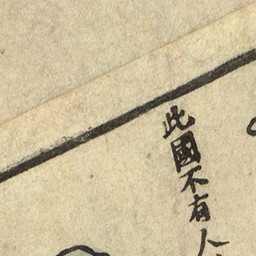 此國不有人